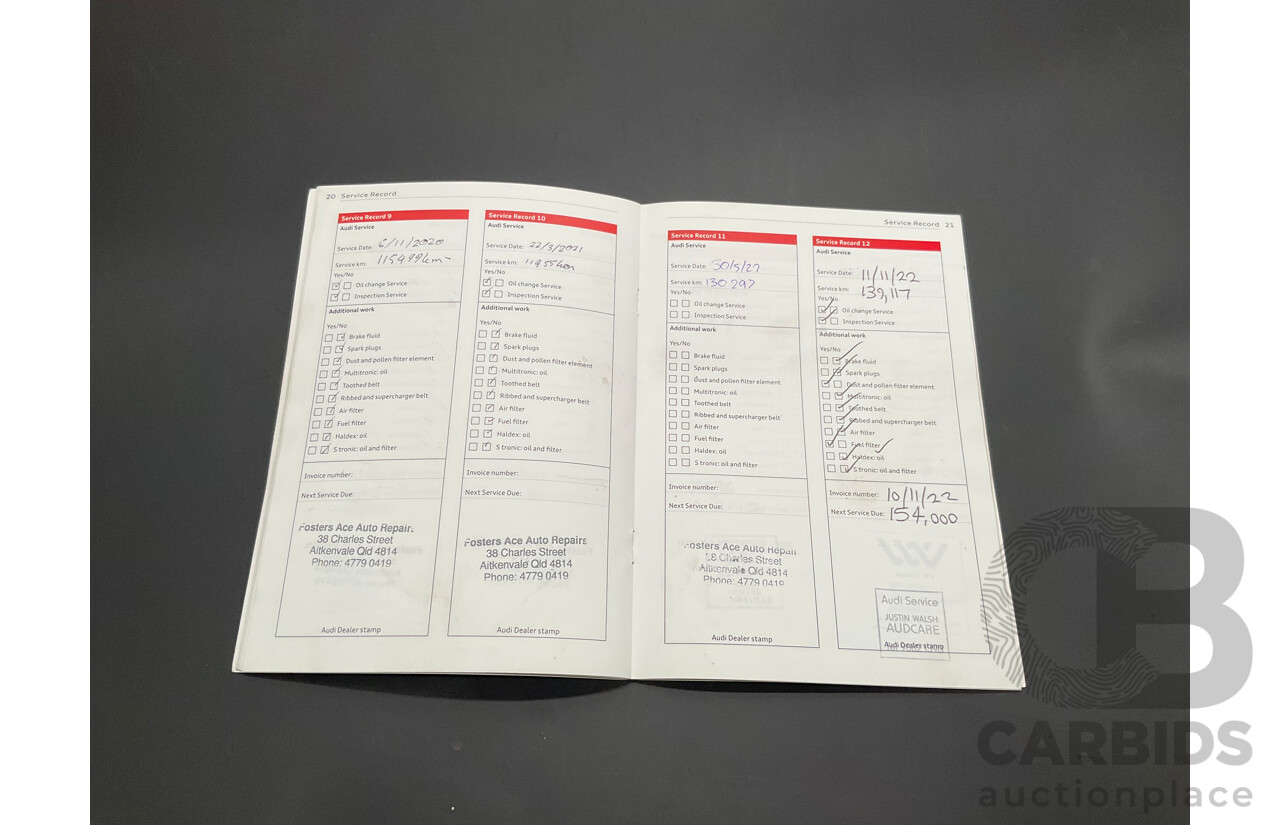 20 Service Record
Service Record 9
Audi Service
Service Date: 6/11/2020
Service km: 115499km-
Yes/No
Oil change Service
Inspection Service
Additional work
Yes/No
Brake fluid
Spark plugs
Dust and pollen filter element
Multitronic: oil
Toothed belt
Ribbed and supercharger belt
Air filter
Fuel filter
Haldex: oil
S tronic: oil and filter
Invoice number:
Next Service Due:
Fosters Ace Auto Repairs
38 Charles Street
Aitkenvale Qld 4814
Phone: 4779 0419
Audi Dealer stamp
Service Record 10
Audi Service
Service Date: 22/3/2021
Service km:
Yes/No
Oil change Service
Inspection Service
Additional work
Yes/No
Brake fluid
Spark plugs
Dust and pollen filter element
Multitronic: oil
Toothed belt
Ribbed and supercharger belt
Air filter
Fuel filter
Haldex: oil
S tronic: oil and filter
Invoice number:
Next Service Due:
Fosters Ace Auto Repairs
38 Charles Street
Aitkenvale Qld 4814
Phone: 4779 0419
Audi Dealer stamp
Service Record 21
Service Record 11
Audi Service
Service Date: 30/5/22
Service km: 130 297
Yes/No
Oil change Service
Inspection Service
Additional work
Yes/No
Brake fluid
Spark plugs
Dust and pollen filter element
Multitronic: oil
Toothed belt
Ribbed and supercharger belt
Air filter
Fuel filter
Haldex: oil
S tronic: oil and filter
Invoice number:
Next Service Due:
Fosters Ace Auto Repairs
38 Charles Street
Aitkenvale Qld 4814
Phone: 4779 0419
Audi Dealer stamp
Service Record 12
Audi Service
Service Date: 11/11/22
Service km: 139,117
Yes/No
Oil change Service
Inspection Service
Additional work
Yes/No
Brake fluid
Spark plugs
Dust and pollen filter element
Multitronic: oil
Toothed belt
Ribbed and supercharger belt
Air filter
Fuel filter
Haldex: oil
S tronic: oil and filter
Invoice number: 10/11/22
Next Service Due: 154,000
Audi Service
JUSTIN WALSH
AUDCARE
Audi Dealer stamp
CB
CARBIDS
auctionplace